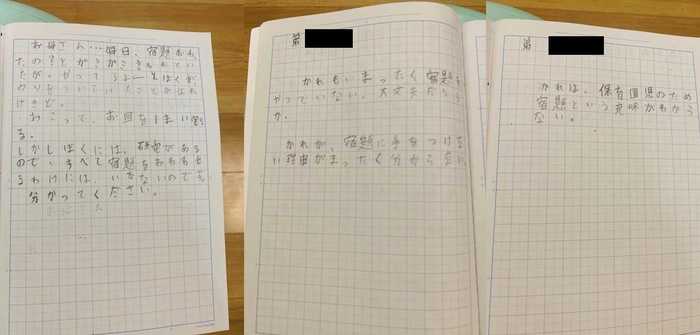 お母さん…毎日、宿題おわっ
たの?とがさがさきかれてい
たが、やってるよーとぼくが
のりをついていたことがばれ
けきど。
おこって、お皿をしまい
る。
しかしぼくには、
ので、すべて宿題をおわらせ
るわけには、いきないので
分かってください。
弟
かれも、まったく宿題を
やっていない。大丈夫だろう
か。
かれが、宿題に手をつけな
い理由がまったく分からない。
弟
かれは、保育園児のため
宿題という意味がわから
ない。